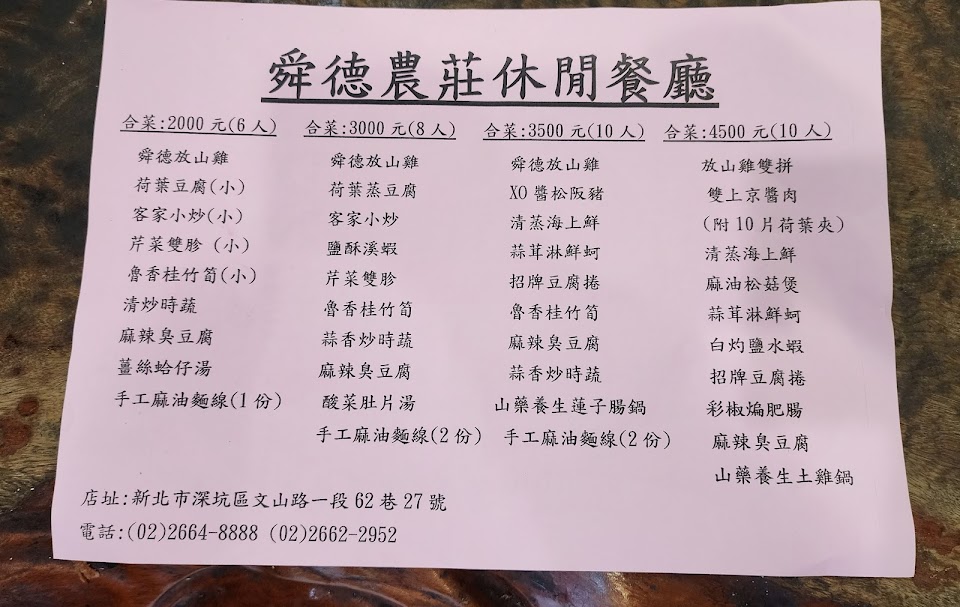 舜德農莊休閒餐廳
合菜:2000 元(6 人)
舜德放山雞
荷葉豆腐(小)
客家小炒(小)
芹菜雙胗 (小)
魯香桂竹筍(小)
清炒時蔬
麻辣臭豆腐
薑絲蛤仔湯
手工麻油麵線(1 份)
合菜:3000 元(8 人)
舜德放山雞
荷葉蒸豆腐
客家小炒
鹽酥溪蝦
芹菜雙胗
魯香桂竹筍
蒜香炒時蔬
麻辣臭豆腐
酸菜肚片湯
手工麻油麵線(2 份)
合菜:3500 元(10 人)
舜德放山雞
XO 醬松阪豬
清蒸海上鮮
蒜茸淋鮮蚵
招牌豆腐捲
魯香桂竹筍
麻辣臭豆腐
蒜香炒時蔬
山藥養生蓮子腸鍋
手工麻油麵線(2 份)
合菜:4500 元(10 人)
放山雞雙拼
雙上京醬肉
(附 10 片荷葉夾)
清蒸海上鮮
麻油松菇煲
蒜茸淋鮮蚵
白灼鹽水蝦
招牌豆腐捲
彩椒煸肥腸
麻辣臭豆腐
山藥養生土雞鍋
店址:新北市深坑區文山路一段 62 巷 27 號
電話:(02)2664-8888 (02)2662-2952